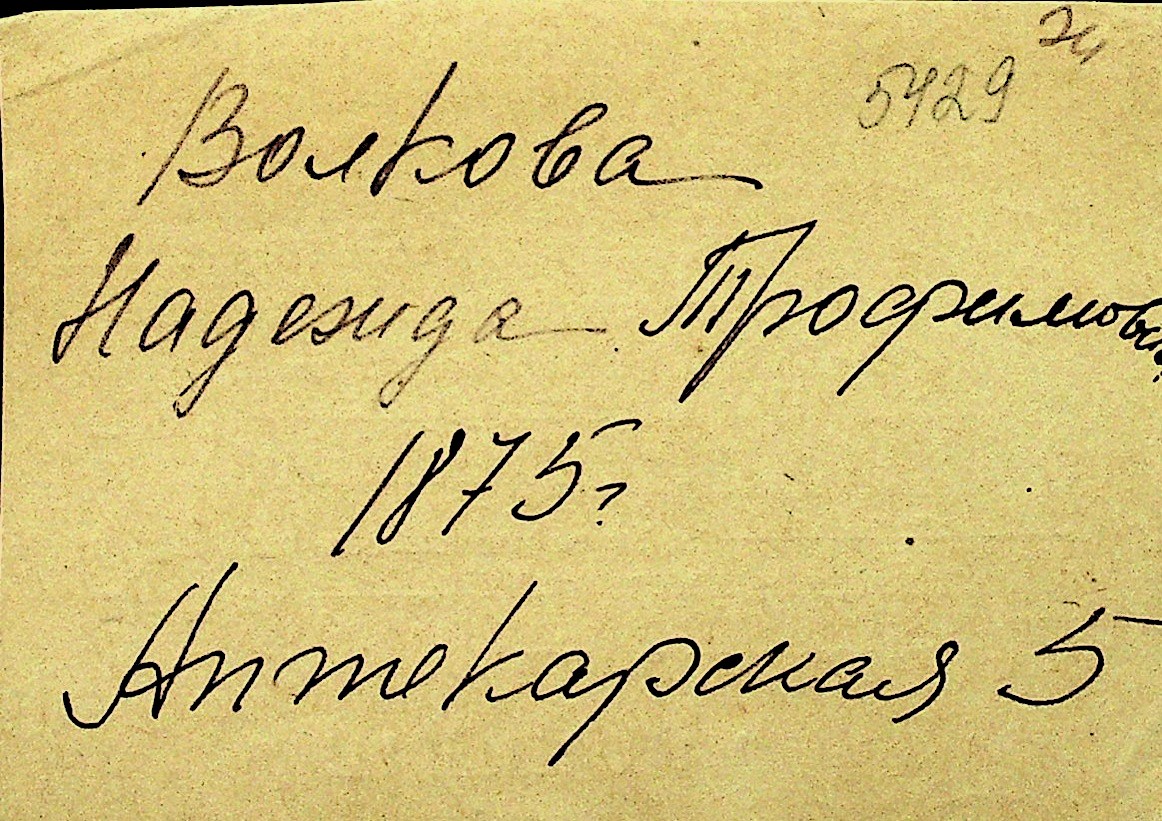 5429
Волкова
Надежда Трофимовна
1875 г
Аптекарская 5